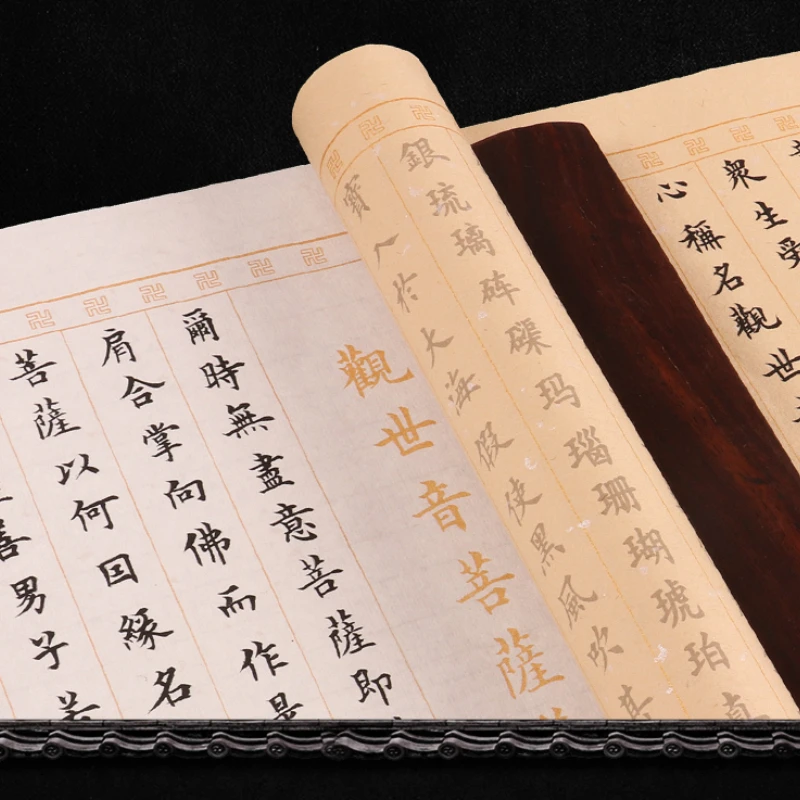 眾生受
心稱名觀世
銀琉璃砗磲玛瑙珊瑚琥珀真
寶入於大海假使黑風吹其
觀世音菩薩
爾時無盡意菩薩即
肩合掌向佛而作是
菩薩以何因緣名
善男子若